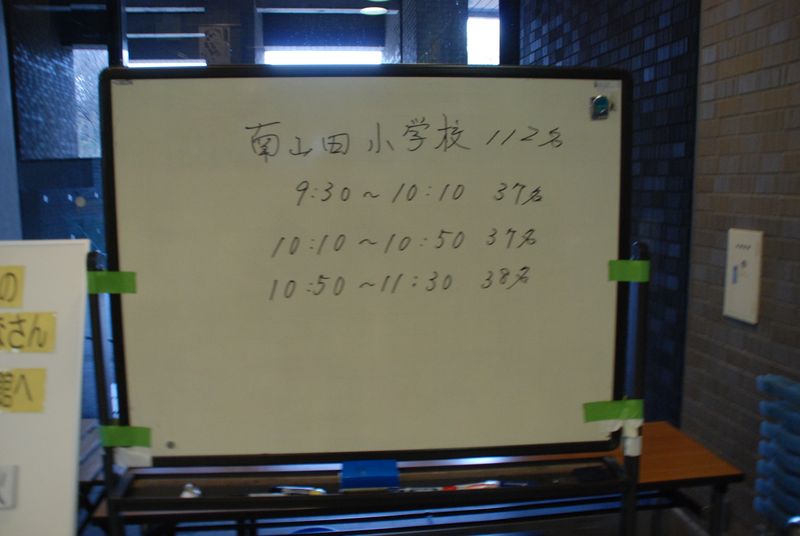 南山田小学校 112名
9:30～10:10 37名
10:10～10:50 37名
10:50～11:30 38名
の
さん
館へ